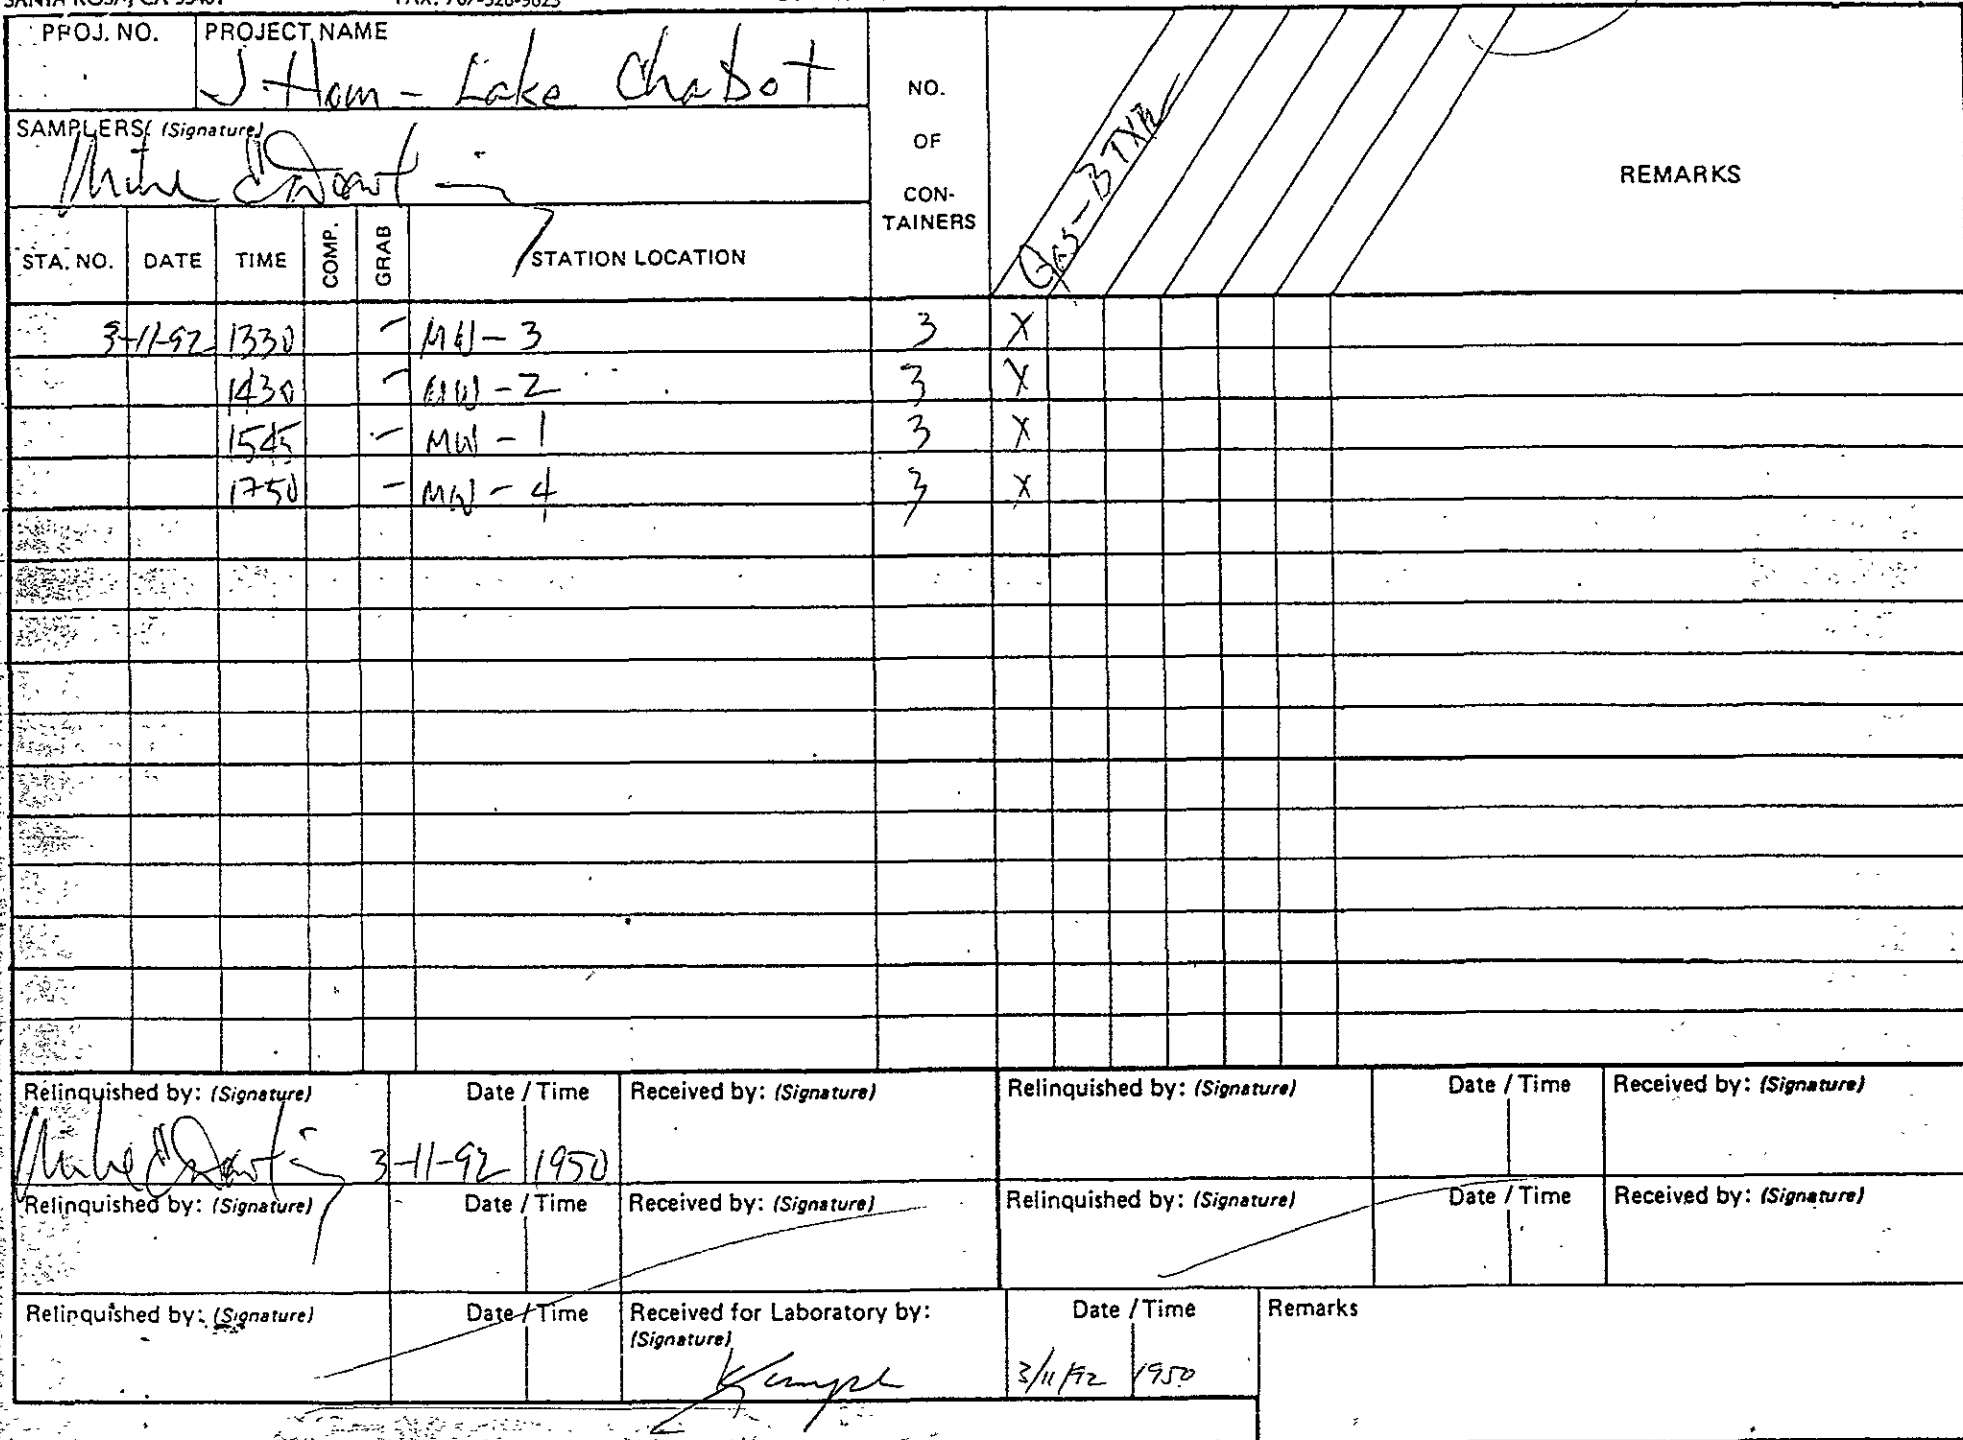 SANTA ROSA, CA 95401 FAX: 707-526-9623
PROJ. NO. PROJECT NAME
J. Hom - Lake Chabot
SAMPLERS: (Signature)
Mike
NO. OF CON-TAINERS
Gas-BTXE
REMARKS
STA. NO. DATE TIME COMP. GRAB STATION LOCATION
3-11-92 1330 - MW-3 3 X
1430 - MW-2 3 X
1545 - MW-1 3 X
1750 - MW-4 3 X
Relinquished by: (Signature) Date / Time Received by: (Signature) Relinquished by: (Signature) Date / Time Received by: (Signature)
Mike 3-11-92 1950
Relinquished by: (Signature) Date / Time Received by: (Signature) Relinquished by: (Signature) Date / Time Received by: (Signature)
Relinquished by: (Signature) Date / Time Received for Laboratory by: (Signature) Date / Time Remarks
3/11/92 1950